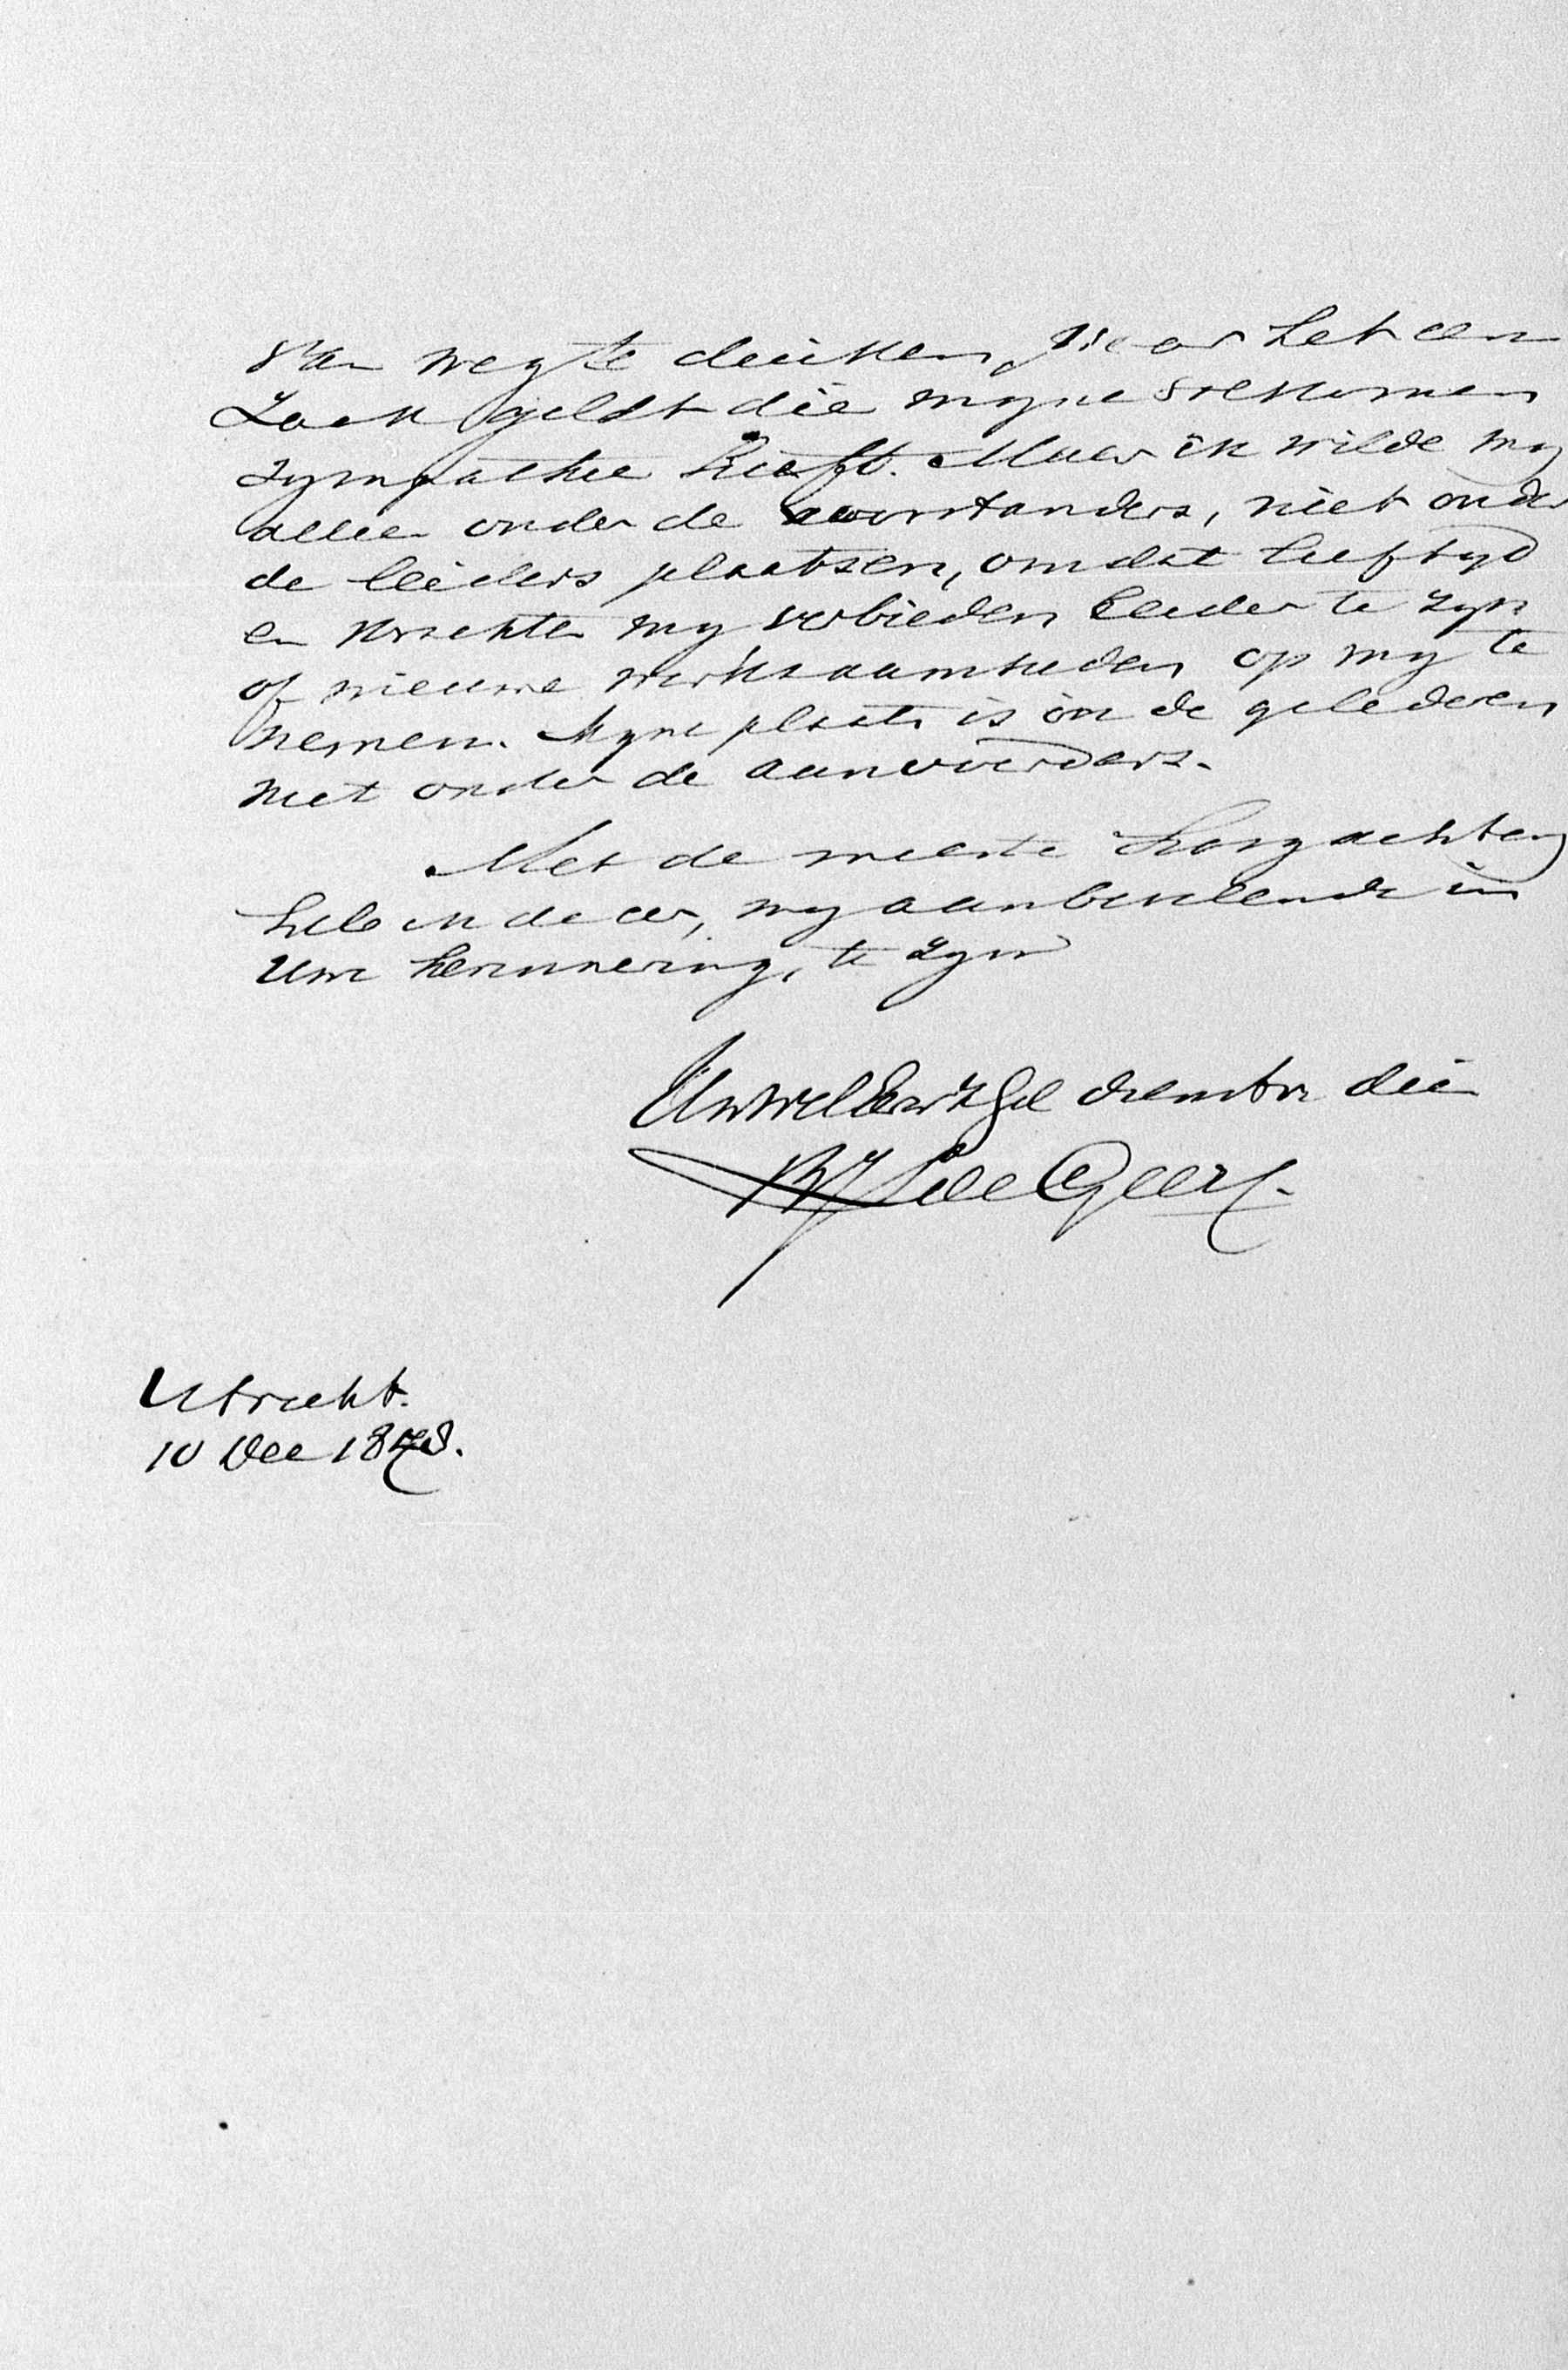 van weg te duiken, waar het een
zaak geldt die myne volkomen
sympathie heeft. Maar ik wilde my
alleen onder de voorstanders, niet onder
de leiders plaatsen, omdat leeftyd
en krachten my verbieden leider te zyn
of nieuwe werkzaamheden op my te
nemen. Myne plaats is in de gelederen
niet onder de aanvoerders.
Met de meeste hoogachting
heb ik de eer, my aanbevelende in
Uwe herinnering, te zyn
UwWelEerwZGel dienstw die
BJL de Geer
Utrecht.
10 Dec 1878.